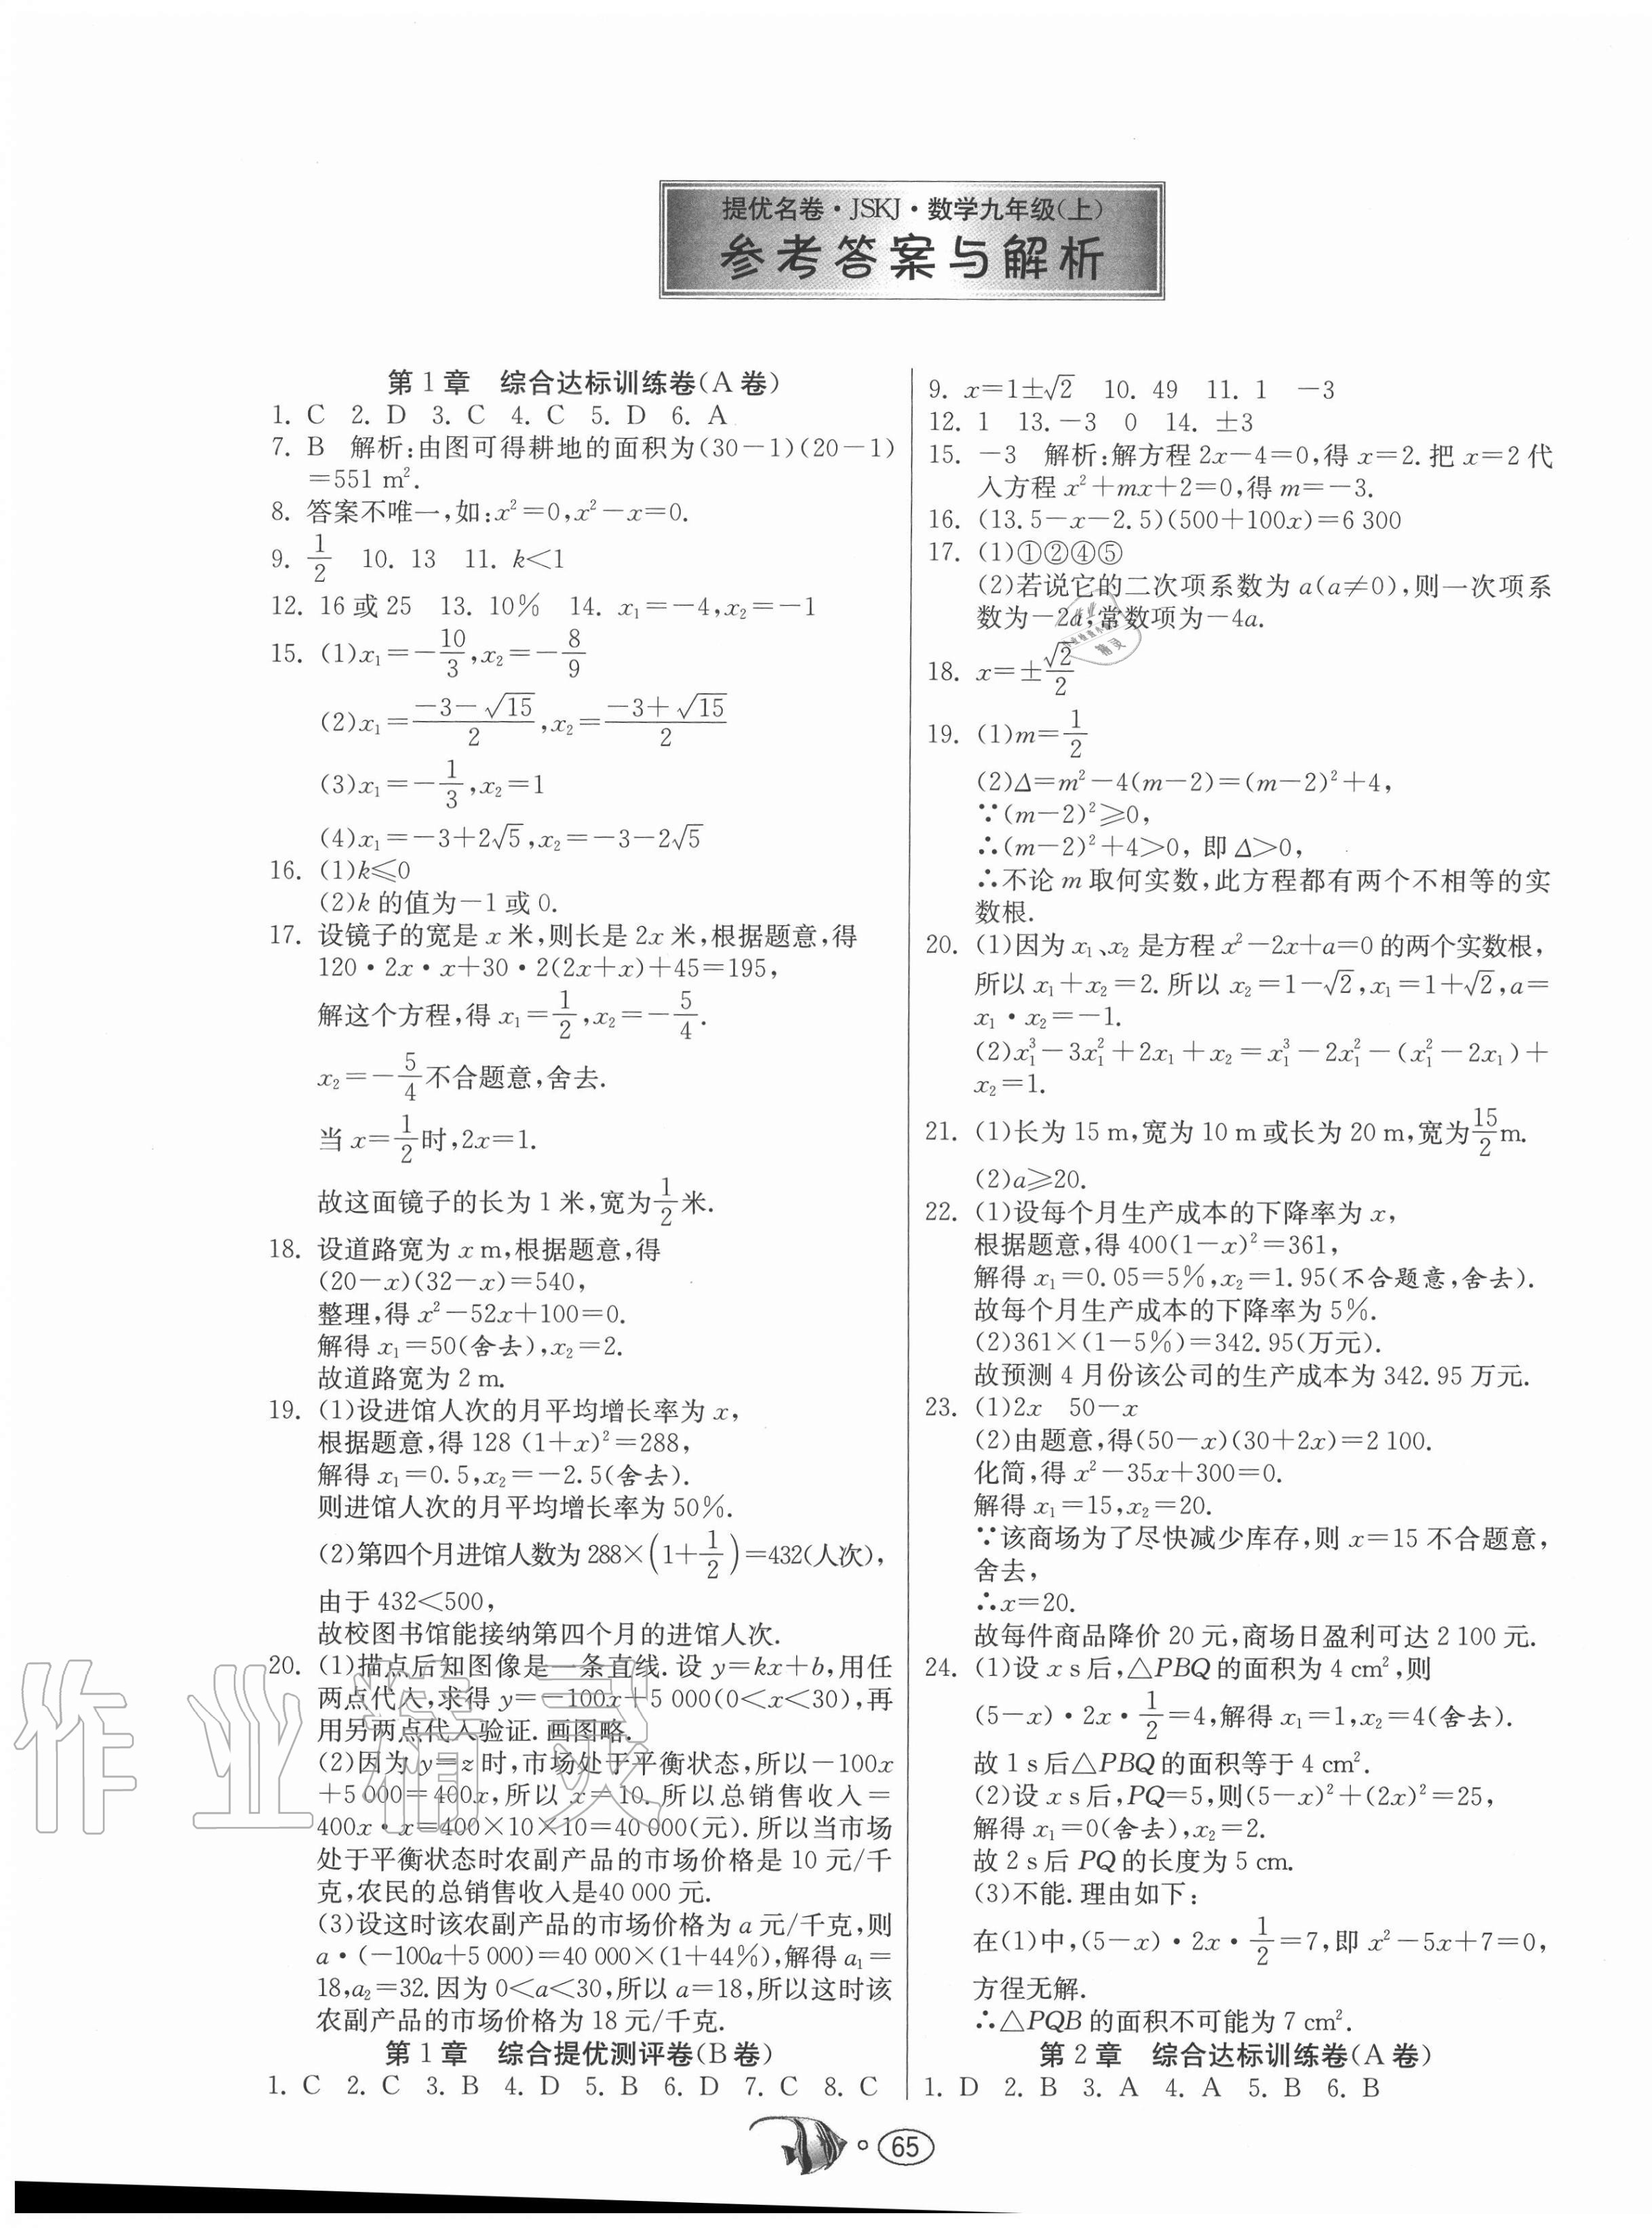 提优名卷·JSKJ·数学九年级(上)
参考答案与解析
第1章 综合达标训练卷(A卷)
1. C 2. D 3. C 4. C 5. D 6. A
7. B 解析:由图可得耕地的面积为(30-1)(20-1)
=551 m².
8. 答案不唯一,如:x²=0,x²-x=0.
9. 1/2 10. 13 11. k<1
12. 16或25 13. 10% 14. x₁=-4,x₂=-1
15. (1)x₁=-10/3,x₂=-8/9
(2)x₁=(-3-√15)/2,x₂=(-3+√15)/2
(3)x₁=-1/3,x₂=1
(4)x₁=-3+2√5,x₂=-3-2√5
16. (1)k≤0
(2)k的值为-1或0.
17. 设镜子的宽是x米,则长是2x米,根据题意,得
120·2x·x+30·2(2x+x)+45=195,
解这个方程,得x₁=1/2,x₂=-5/4.
x₂=-5/4不合题意,舍去.
当x=1/2时,2x=1.
故这面镜子的长为1米,宽为1/2米.
18. 设道路宽为x m,根据题意,得
(20-x)(32-x)=540,
整理,得x²-52x+100=0.
解得x₁=50(舍去),x₂=2.
故道路宽为2 m.
19. (1)设进馆人次的月平均增长率为x,
根据题意,得128 (1+x)²=288,
解得x₁=0.5,x₂=-2.5(舍去).
则进馆人次的月平均增长率为50%.
(2)第四个月进馆人数为288×(1+1/2)=432(人次),
由于432<500,
故校图书馆能接纳第四个月的进馆人次.
20. (1)描点后知图像是一条直线.设y=kx+b,用任
两点代入,求得y=-100x+5 000(0<x<30),再
用另两点代入验证.画图略.
(2)因为y=z时,市场处于平衡状态,所以-100x
+5 000=400x,所以x=10.所以总销售收入=
400x·x=400×10×10=40 000(元).所以当市场
处于平衡状态时农副产品的市场价格是10元/千
克,农民的总销售收入是40 000元.
(3)设这时该农副产品的市场价格为a元/千克,则
a·(-100a+5 000)=40 000×(1+44%),解得a₁=
18,a₂=32.因为0<a<30,所以a=18,所以这时该
农副产品的市场价格为18元/千克.
第1章 综合提优测评卷(B卷)
1. C 2. C 3. B 4. D 5. B 6. D 7. C 8. C
9. x=1±√2 10. 49 11. 1 -3
12. 1 13. -3 0 14. ±3
15. -3 解析:解方程2x-4=0,得x=2.把x=2代
入方程x²+mx+2=0,得m=-3.
16. (13.5-x-2.5)(500+100x)=6 300
17. (1)①②④⑤
(2)若说它的二次项系数为a(a≠0),则一次项系
数为-2a,常数项为-4a.
18. x=±√2/2
19. (1)m=1/2
(2)Δ=m²-4(m-2)=(m-2)²+4,
∵(m-2)²≥0,
∴(m-2)²+4>0,即Δ>0,
∴不论m取何实数,此方程都有两个不相等的实
数根.
20. (1)因为x₁、x₂是方程x²-2x+a=0的两个实数根,
所以x₁+x₂=2.所以x₂=1-√2,x₁=1+√2,a=
x₁·x₂=-1.
(2)x₁³-3x₁²+2x₁+x₂=x₁³-2x₁²-(x₁²-2x₁)+
x₂=1.
21. (1)长为15 m,宽为10 m或长为20 m,宽为15/2 m.
(2)a≥20.
22. (1)设每个月生产成本的下降率为x,
根据题意,得400(1-x)²=361,
解得x₁=0.05=5%,x₂=1.95(不合题意,舍去).
故每个月生产成本的下降率为5%.
(2)361×(1-5%)=342.95(万元).
故预测4月份该公司的生产成本为342.95万元.
23. (1)2x 50-x
(2)由题意,得(50-x)(30+2x)=2 100.
化简,得x²-35x+300=0.
解得x₁=15,x₂=20.
∵该商场为了尽快减少库存,则x=15不合题意,
舍去,
∴x=20.
故每件商品降价20元,商场日盈利可达2 100元.
24. (1)设x s后,△PBQ的面积为4 cm²,则
(5-x)·2x·1/2=4,解得x₁=1,x₂=4(舍去).
故1 s后△PBQ的面积等于4 cm².
(2)设x s后,PQ=5,则(5-x)²+(2x)²=25,
解得x₁=0(舍去),x₂=2.
故2 s后PQ的长度为5 cm.
(3)不能.理由如下:
在(1)中,(5-x)·2x·1/2=7,即x²-5x+7=0,
方程无解.
∴△PQB的面积不可能为7 cm².
第2章 综合达标训练卷(A卷)
1. D 2. B 3. A 4. A 5. B 6. B
65
作业精灵